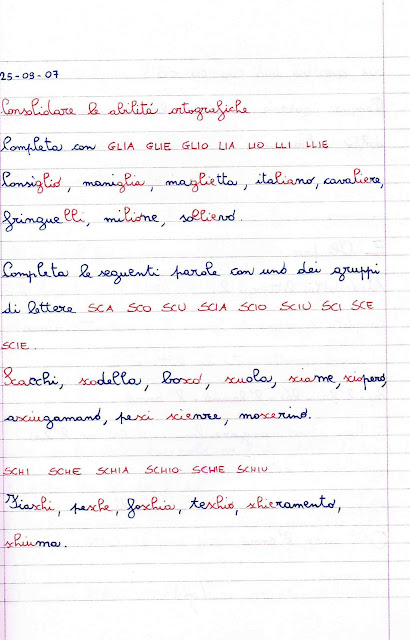 25-09-07
Consolidare le abilità ortografiche
Completa con GLIA GLIE GLIO LIA LIO LLI LLIE
Consiglio, maniglia, maglietta, italiano, cavaliere,
fringuelli, milione, sollievo.
Completa le seguenti parole con uno dei gruppi
di lettere SCA SCO SCU SCIA SCIO SCIU SCI SCE
SCIE.
Scacchi, scodella, bosco, scuola, sciame, sciopero,
asciugamano, pesci scienze, moscerino.
SCHI SCHE SCHIA SCHIO SCHIE SCHIU
Fiaschi, pesche, foschia, teschio, schieramento,
schiuma.